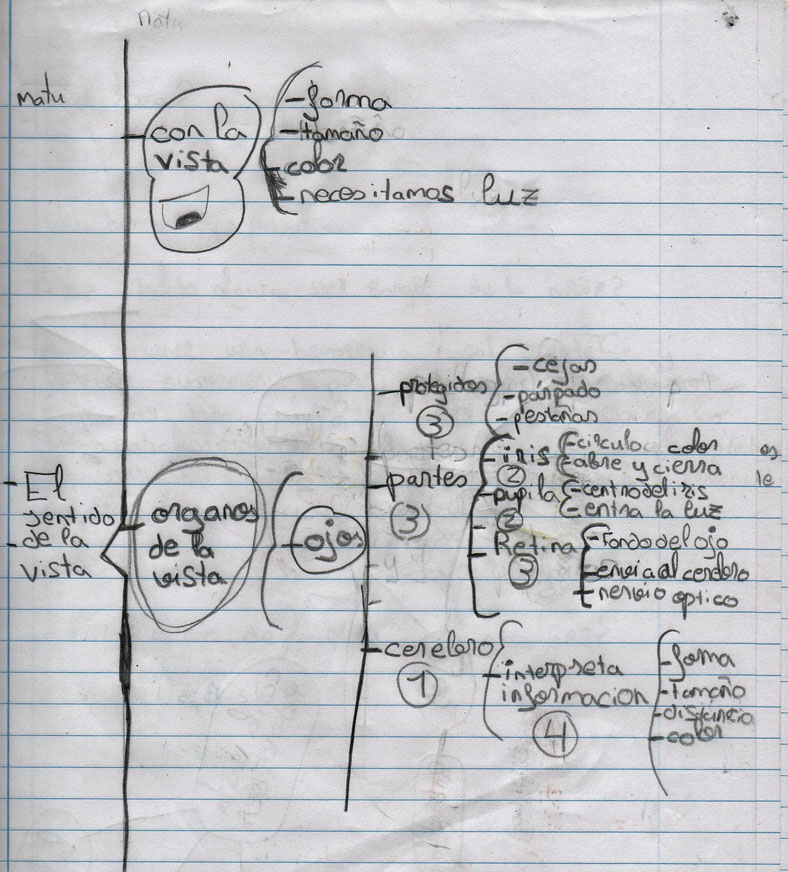 matu
matu
con la
vista
- forma
- tamaño
- color
- necesitamos luz
- El
sentido
- de la
vista
- organos
de la
vista
- ojos
- protegidos
3
- cejas
- párpado
- pestañas
- partes
3
- iris
2
- circulo color
- abre y cierra
- pupila
2
- centro del iris
- entra la luz
- Retina
3
- Fondo del ojo
- envia al cerebro
- nervio optico
- cerebro
1
- interpreta
informacion
4
- forma
- tamaño
- distancia
- color